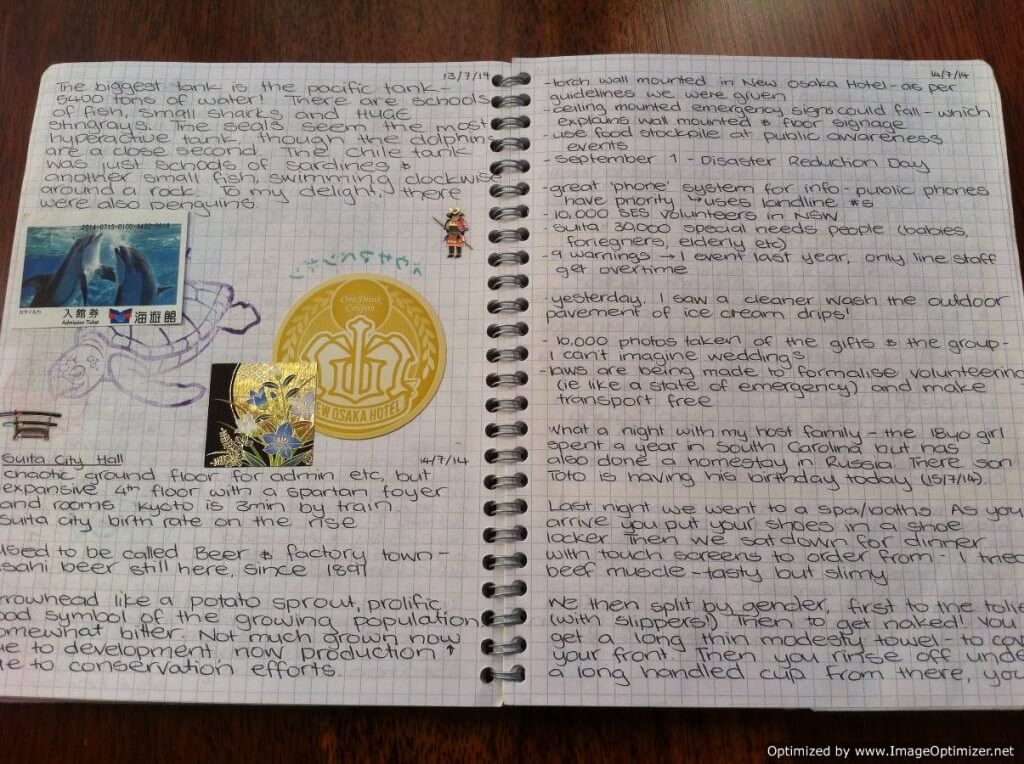 13/7/14
The biggest tank is the pacific tank -
5400 tons of water! There are schools
of fish, small sharks and HUGE
stingrays. The seals seem the most
hyperactive tank, though the dolphins
are a close second. The chile tank
was just schools of sardines &
another small fish, swimming clockwise
around a rock. To my delight, there
were also penguins.
入館券
Admission Ticket
海遊館
One Drink
Coupon
NEW OSAKA HOTEL
Suita City Hall 14/7/14
chaotic ground floor for admin etc, but
expansive 4th floor with a spartan foyer
and rooms. Kyoto is 3min by train
Suita city birth rate on the rise
used to be called Beer & factory town -
asahi beer still here, since 1891
rrowhead like a potato sprout, prolific
ood symbol of the growing population
omewhat bitter. Not much grown now
ue to development now production ↑
ue to conservation efforts.
14/7/14
-torch wall mounted in New Osaka Hotel - as per
guidelines we were given
-ceiling mounted emergency signs could fall - which
explains wall mounted & floor signage
-use food stockpile at public awareness
events
-September 1 - Disaster Reduction Day
-great 'phone' system for info - public phones
have priority ↳uses landline #s
-10,000 SES volunteers in NSW
Suita 30,000 special needs people (babies,
foriegners, elderly etc)
-9 warnings → 1 event last year, only line staff
get overtime
-yesterday, I saw a cleaner wash the outdoor
pavement of ice cream drips!
- 10,000 photos taken of the gifts & the group -
I can't imagine weddings
-laws are being made to formalise volunteering
(ie like a state of emergency) and make
transport free
What a night with my host family - the 18yo girl
spent a year in South Carolina but has
also done a homestay in Russia. There son
Toto is having his birthday today (15/7/14).
Last night we went to a spa/baths. As you
arrive you put your shoes in a shoe
locker. Then we sat down for dinner
with touch screens to order from - I tried
beef muscle - tasty but slimy
We then split by gender, first to the toile
(with slippers!) Then to get naked! You
get a long thin modesty towel - to cov
your front. Then you rinse off unde
a long handled cup. From there, you
Optimized by www.ImageOptimizer.net